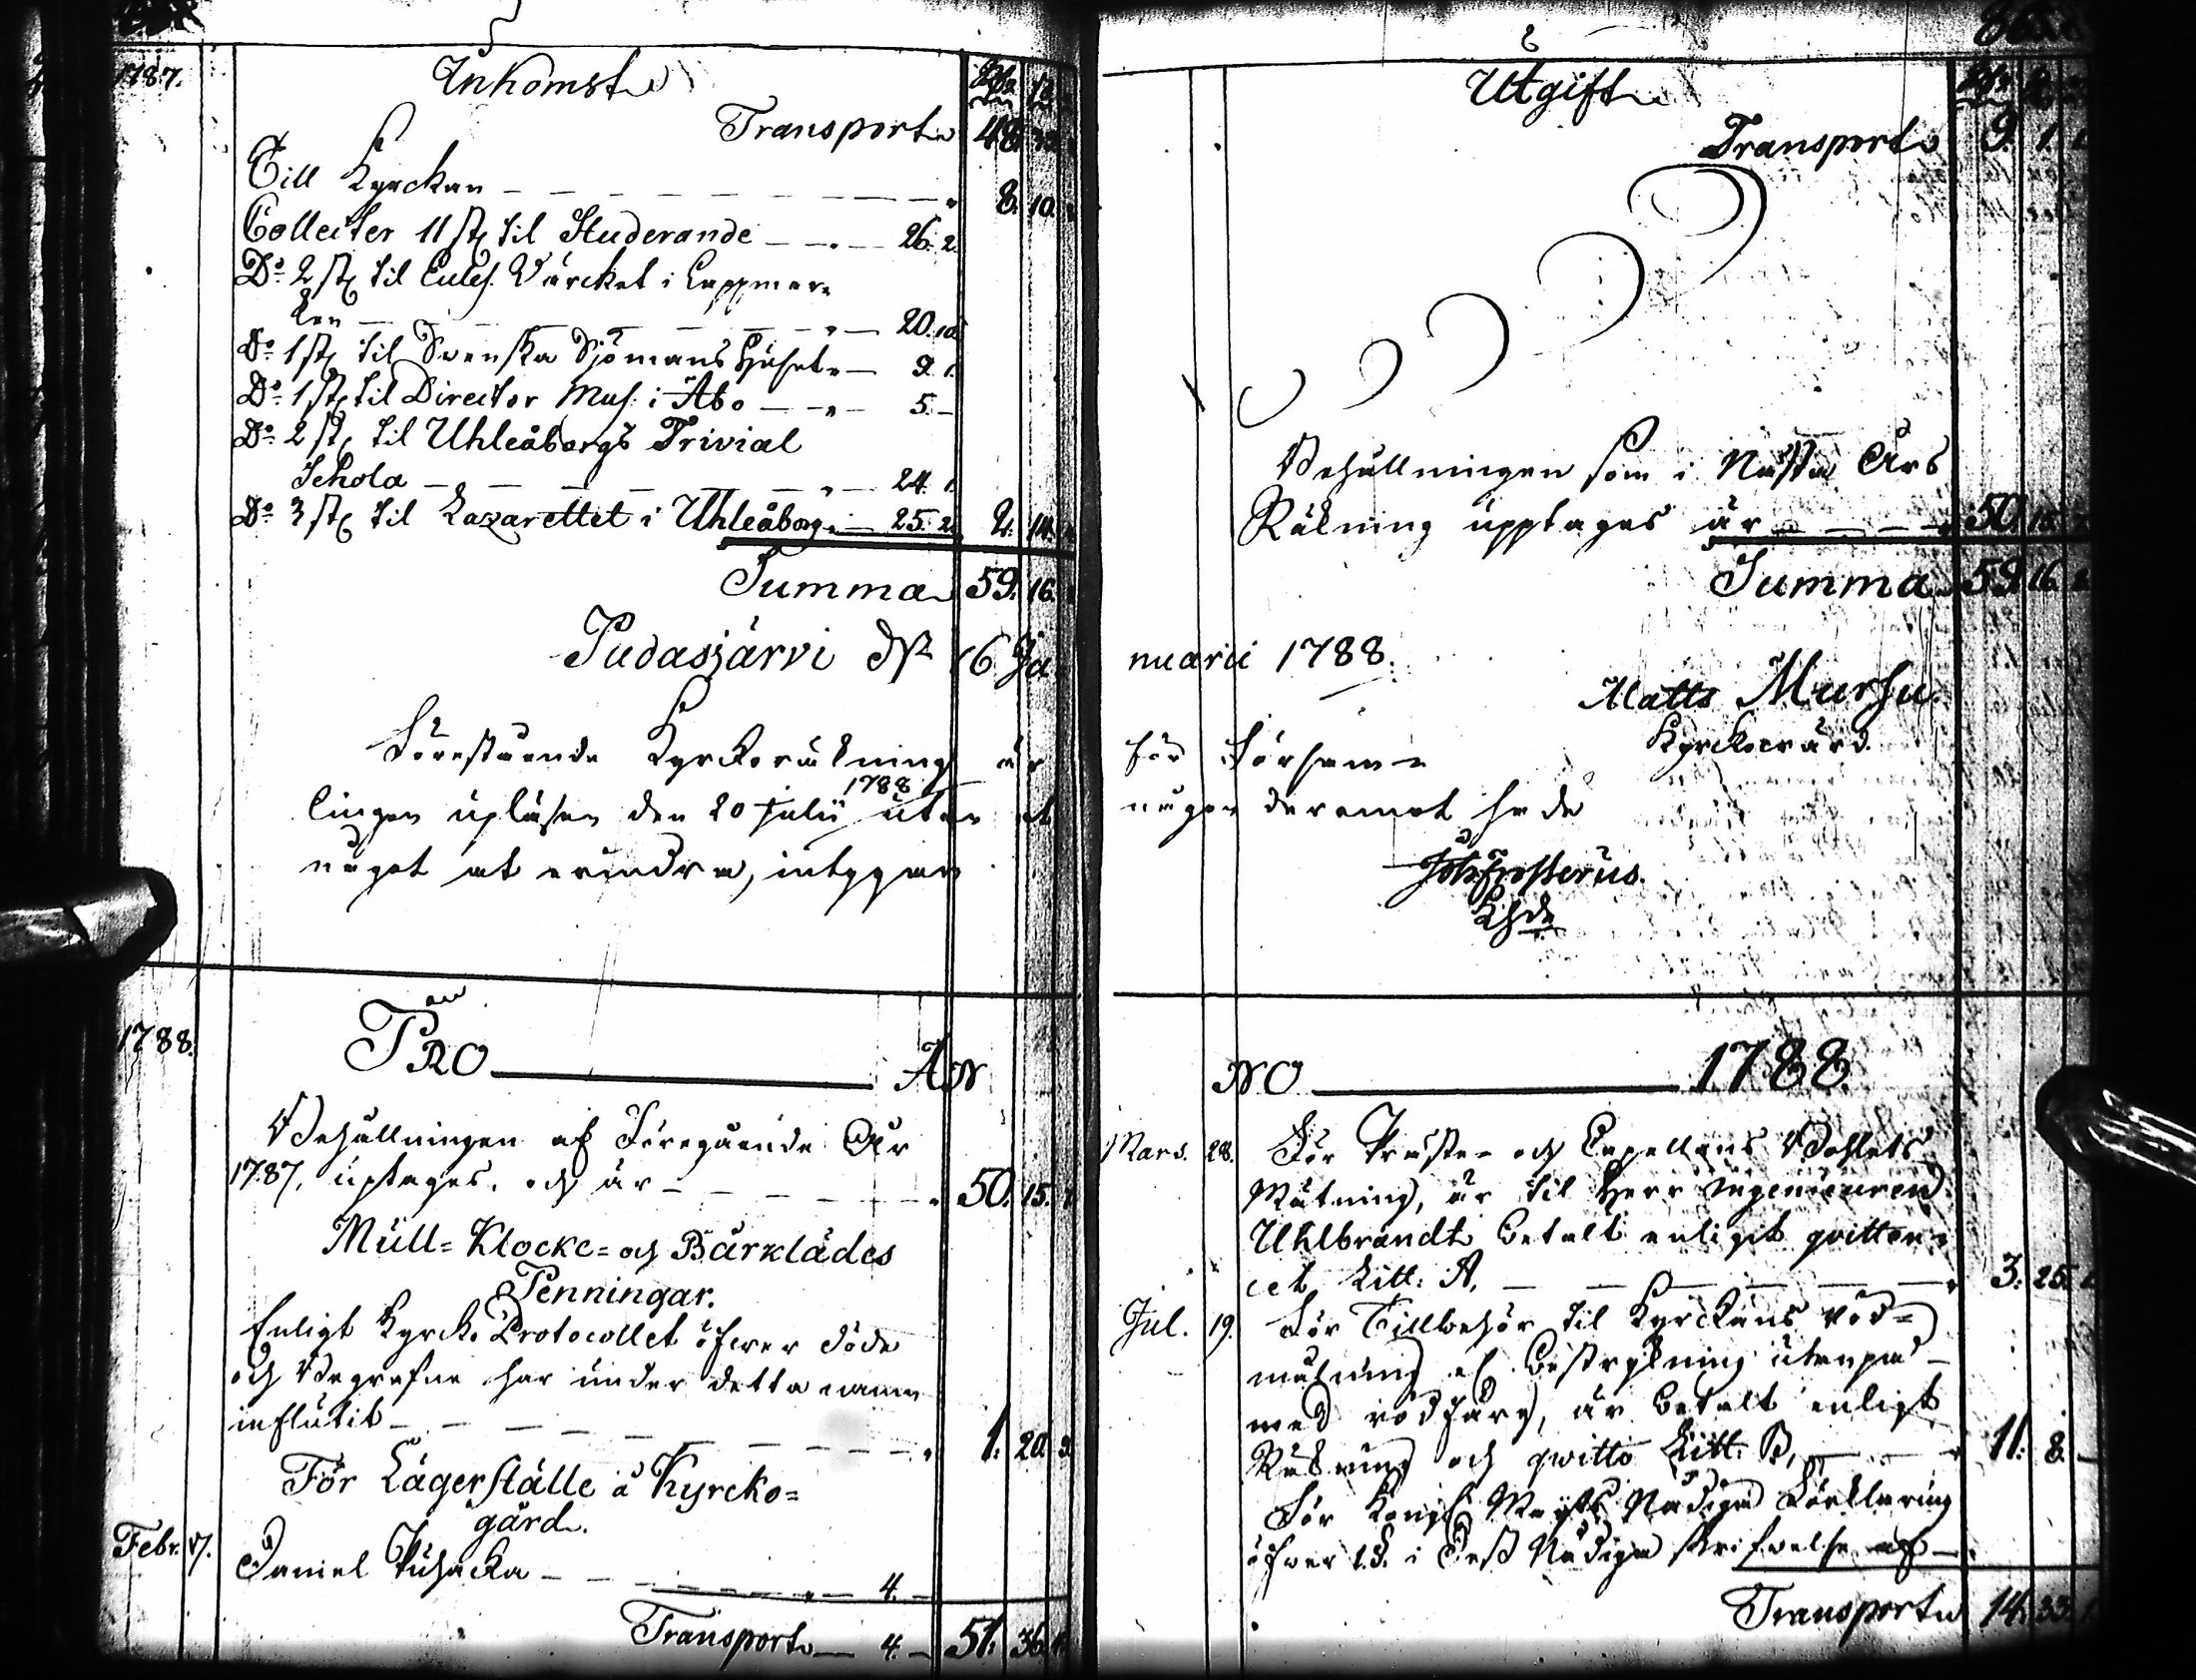 1787.
Inkomst
Transport 48.
Till Kyrckan 8. 10.
Collecter 11 st til Studerande 26. 2
Do 2 st til Eccles. Värcket i Lappmar=
ken 20. 10
Do 1 st til Svenska Sjömans Huset 9. 1.
Do 1 st til Director Mus: i Åbo 5. -
Do 2 st til Uhleåborgs Trivial
Schola 24.
Do 3 st til Lazarettet i Uhleåborg 25. 2 2. 14.
Summa 59. 16.
Pudasjärvi d. 16 Ja
Förestående Kyrckoräkning är
lingen upläsen den 20 Julii 1788 utan at
något at erindra, intygar
1788.
PRO AN
Behållningen af Föregående År
1787, uptages, och är 50. 15.
Mull= Klocke= och Bårklädes
Penningar.
Enligt Kyrcko Protocollet öfwer döde
och Begrafne har under detta namn
influtit 1. 20. 3.
För Lägerställe å Kyrcko=
gård.
Febr. 17. Daniel 4. -
Transport 4. - 51. 36.
Utgift
Transport 9. 1.
Behållningen som i Nästa Års
Räkning upptages är 50. 15.
Summa 59. 16.
nuarii 1788.
Matts Mursu
Kyrckowärd.
för Församl=
någon deremot hade
Joh:
Khde
NO 1788.
Mars. 28. För Präste= och Capellans Bohlets
Mätning, är til Herr Ingenieuren
Uhlbrandt betalt enligit quitten=
cet Litt: A, 3. 25.
Jul. 19. För Tillbehör til Kyrckans röd=
målning och bestrykning utanpå
med rödfärg, är betalt enligt
Räkning och qwitto Litt: B, 11. 8. -
För Kongl. Maj:ts Nådiga Förklaring
öfwer i Dess Nådiga skrifwelse af
Transport 14. 33.